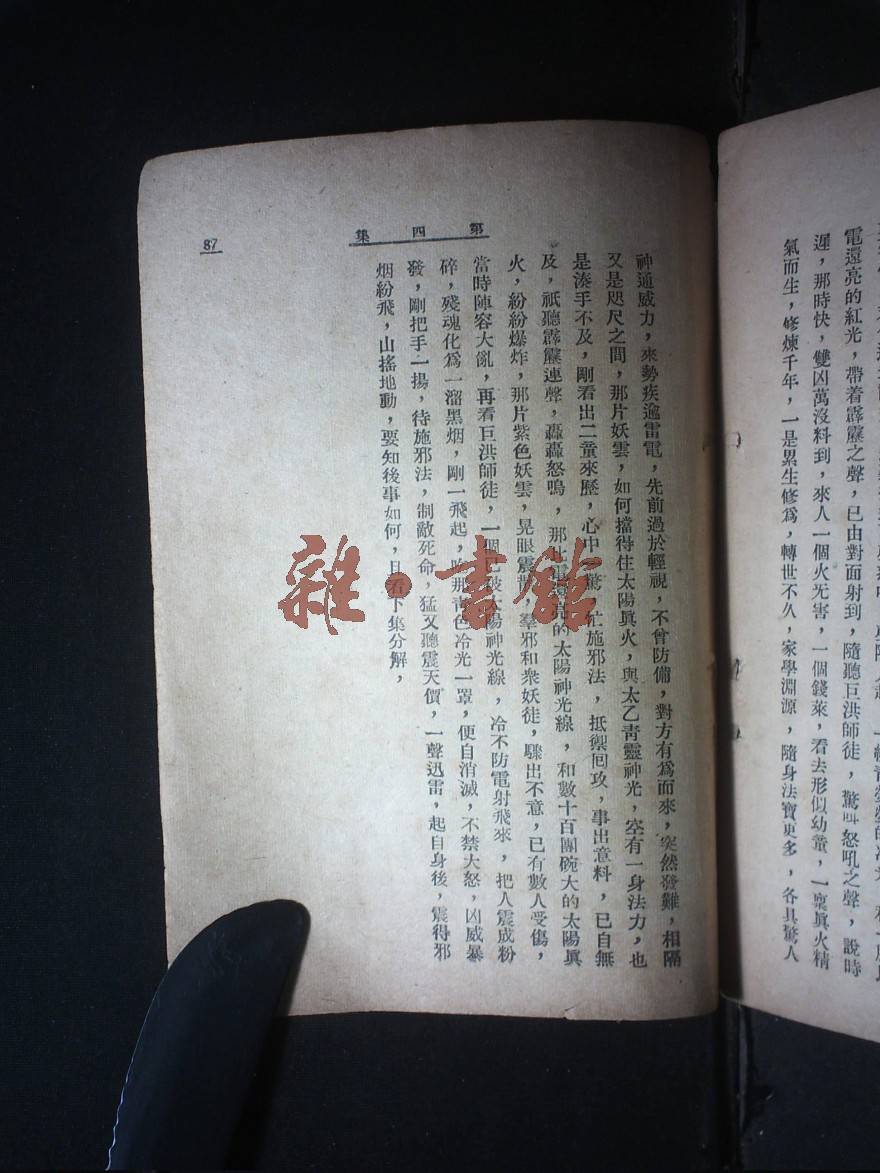 電還亮的紅光，帶着霹靂之聲，已由對面射到，隨聽巨洪師徒，驚叫怒吼之聲，說時
遲，那時快，雙凶萬沒料到，來人一個火旡害，一個錢萊，看去形似幼童，一禀眞火精
氣而生，修煉千年，一是累生修爲，轉世不久，家學淵源，隨身法寶更多，各具驚人
第四集
87
神通威力，來勢疾逾雷電，先前過於輕視，不曾防備，對方有爲而來，突然發難，相隔
又是咫尺之間，那片妖雲，如何擋得住太陽眞火，與太乙青靈神光，空有一身法力，也
是湊手不及，剛看出二童來歷，心中一驚，忙施邪法，抵禦回攻，事出意料，已自無
及，祇聽霹靂連聲，轟轟怒鳴，那比電還亮的太陽神光線，和數十百團碗大的太陽眞
火，紛紛爆炸，那片紫色妖雲，晃眼震散，羣邪和衆妖徒，驟出不意，已有數人受傷，
當時陣容大亂，再看巨洪師徒，一個已被太陽神光線，冷不防電射飛來，把人震成粉
碎，殘魂化爲一溜黑烟，剛一飛起，吃那青色冷光一罩，便自消滅，不禁大怒，凶威暴
發，剛把手一揚，待施邪法，制敵死命，猛又聽震天價，一聲迅雷，起自身後，震得邪
烟紛飛，山搖地動，要知後事如何，且看下集分解，
雜·書館